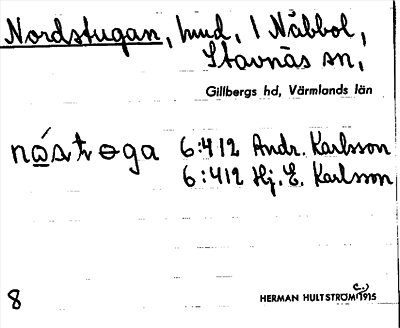 Nordstugan, hmd, 1 Nåbbol,
Stavnäs sn,
Gillbergs hd, Värmlands län
nástɵga 6:412 Andr. Karlsson
6:412 Hj. E. Karlsson
8
HERMAN HULTSTRÖM (c.) 1915